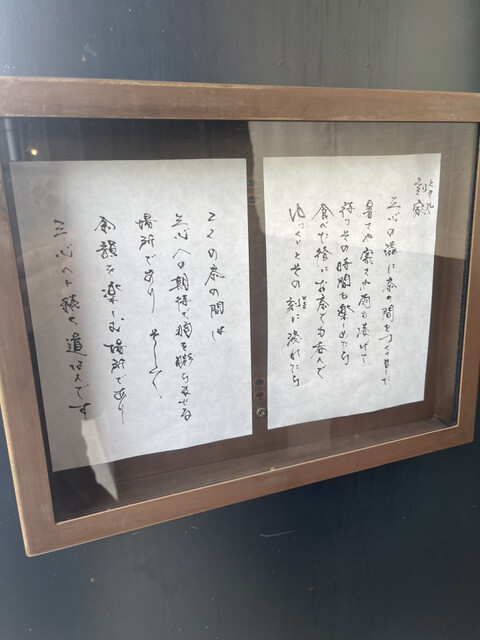 ときや
刻家
三心の隣に茶の間をつくりました
暑さや寒さや雨も凌げて
待つその時間も楽しめたら
食べた後にお茶でも呑んで
ゆっくりとその刻に浸れたら
ここの茶の間は
三心への期待で胸を膨らませる
場所であり そして、
余韻を楽しむ場所であり
三心へと続く道なんです